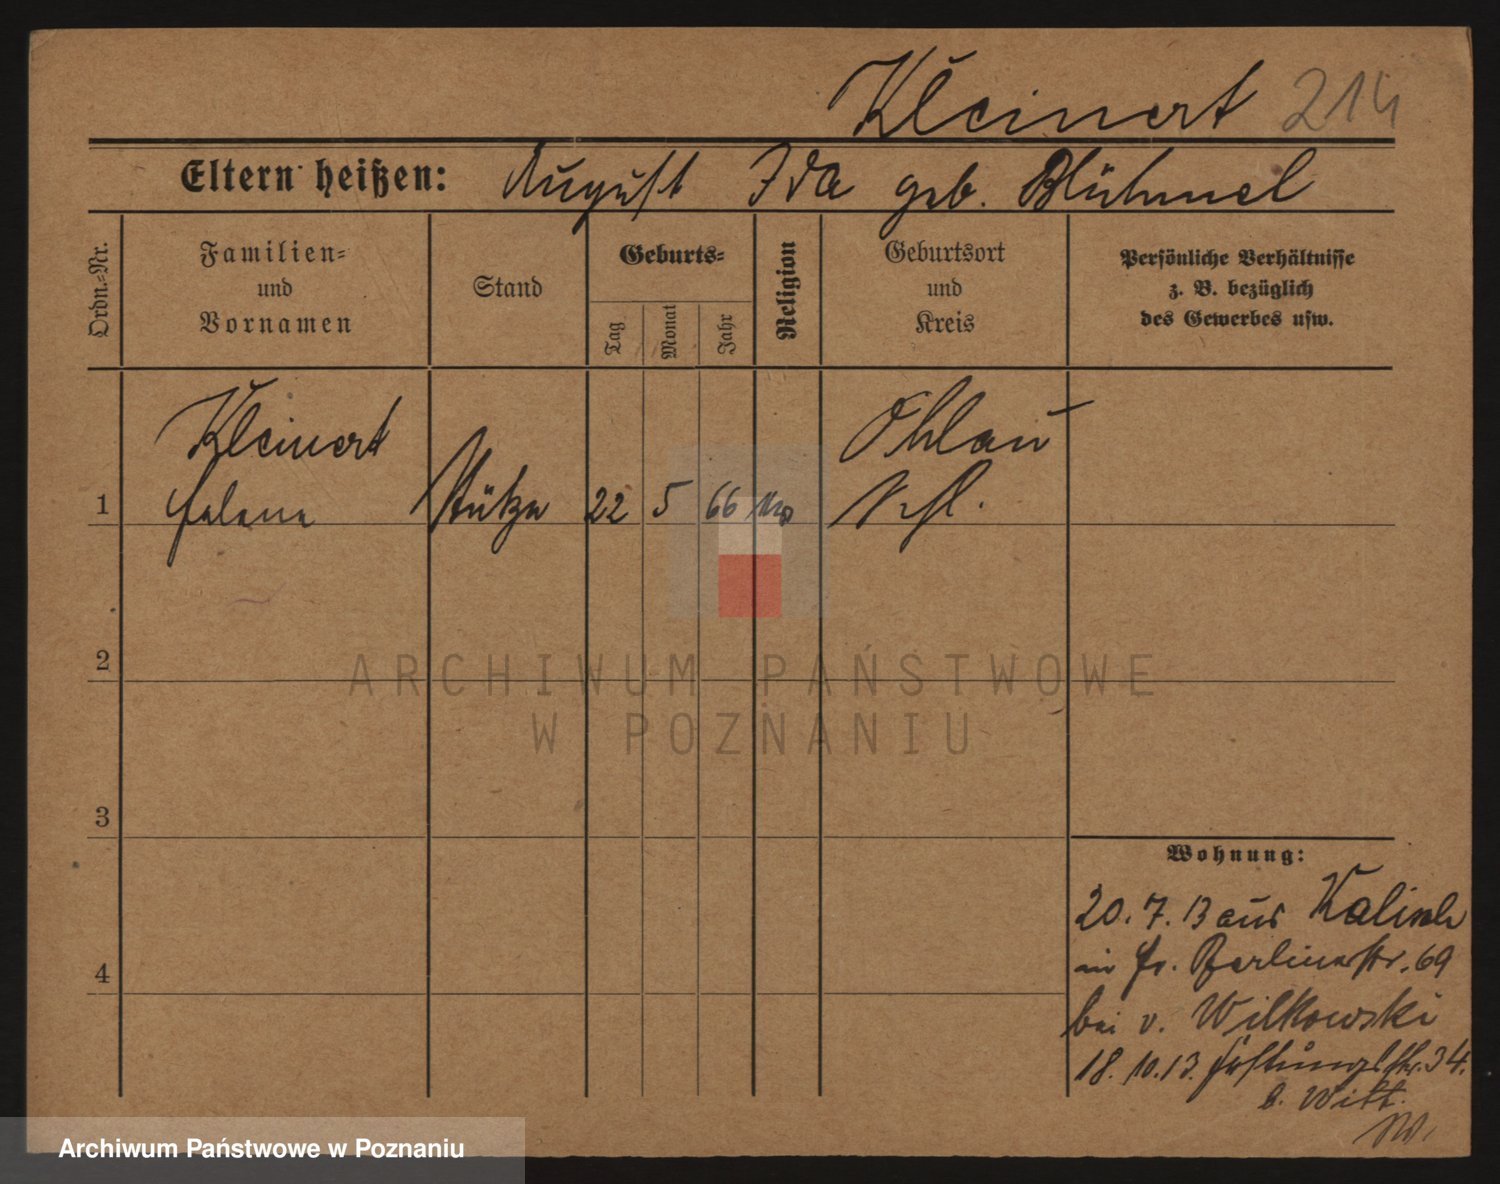 Kleinert 214
Eltern heißen: August Ida geb. Blühmel
Ordn.-Nr.
Familien-
und
Vornamen
Stand
Geburts-
Tag
Monat
Jahr
Religion
Geburtsort
und
Kreis
Persönliche Verhältnisse
z. B. bezüglich
des Gewerbes usw.
Kleinert Ohlau
1 Helene Stütze 22 5 66 Schl.
2
ARCHIWUM PAŃSTWOWE
W POZNANIU
3
Wohnung:
20. 7. 13 aus Kalisch
4
in Berlinerstr. 69
bei v. Wilkowski
18. 10. 13. Festungsstr. 34.
b. Witt.
Archiwum Państwowe w Poznaniu